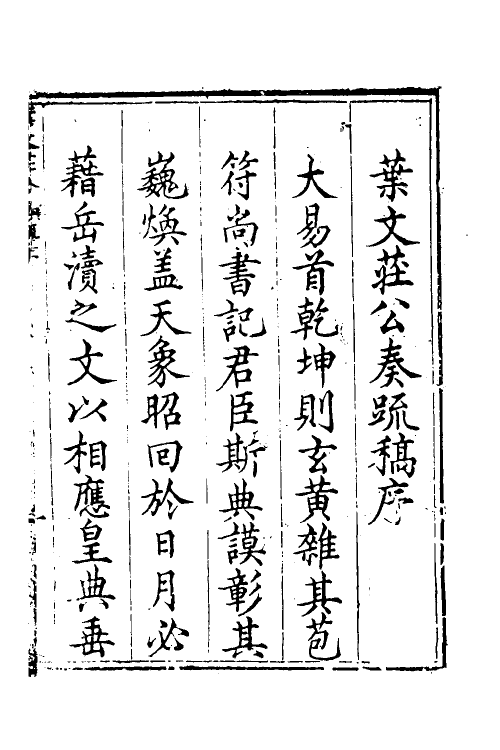 葉文莊公奏疏稿序
大易首乾坤則玄黃雜其苞
符尚書記君臣斯典謨彰其
巍煥盖天象昭回於日月必
藉岳瀆之文以相應皇典垂